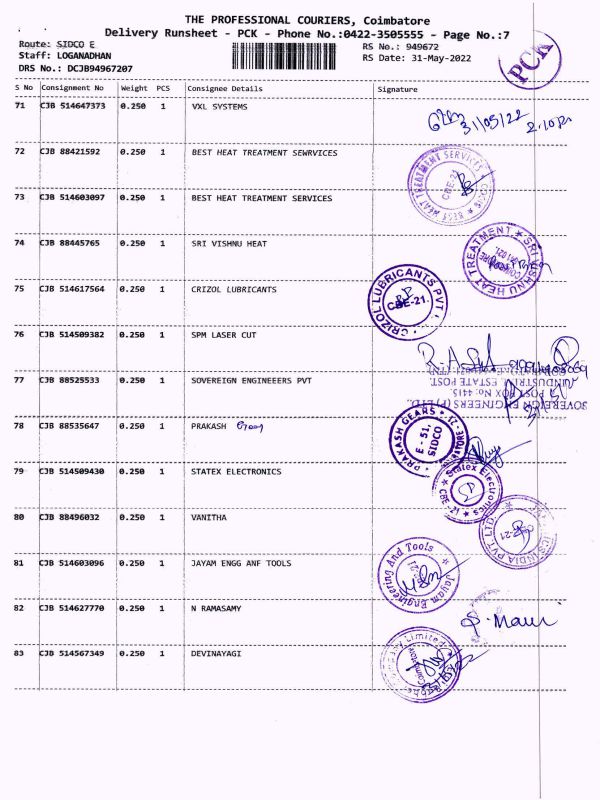 THE PROFESSIONAL COURIERS, Coimbatore
Delivery Runsheet - PCK - Phone No.:0422-3505555 - Page No.:7
Route: SIDCO E
RS No.: 949672
Staff: LOGANADHAN
RS Date: 31-May-2022
DRS No.: DCJB94967207
PCK
S No Consignment No Weight PCS Consignee Details Signature
71 CJB 514647373 0.250 1 VXL SYSTEMS
31/05/22
2.10
72 CJB 88421592 0.250 1 BEST HEAT TREATMENT SEWRVICES
BEST HEAT TREATMENT SERVICES
CBE-21
73 CJB 514603097 0.250 1 BEST HEAT TREATMENT SERVICES
74 CJB 88445765 0.250 1 SRI VISHNU HEAT
SRI VISHNU HEAT TREATMENT
75 CJB 514617564 0.250 1 CRIZOL LUBRICANTS
CRIZOL LUBRICANTS PVT
CBE-21.
76 CJB 514509382 0.250 1 SPM LASER CUT
77 CJB 88525533 0.250 1 SOVEREIGN ENGINEEERS PVT
SOVEREIGN ENGINEERS (P) LTD.
POST BOX No. 4415.
INDUSTRIAL ESTATE POST.
78 CJB 88535647 0.250 1 PRAKASH
PRAKASH GEARS
E - 51,
SIDCO
79 CJB 514509430 0.250 1 STATEX ELECTRONICS
Statex Electronics
CBE-21
80 CJB 88496032 0.250 1 VANITHA
INDIA PVT LTD
81 CJB 514603096 0.250 1 JAYAM ENGG ANF TOOLS
Jayam Engineering And Tools
82 CJB 514627770 0.250 1 N RAMASAMY
83 CJB 514567349 0.250 1 DEVINAYAGI
Limited
Coimbatore